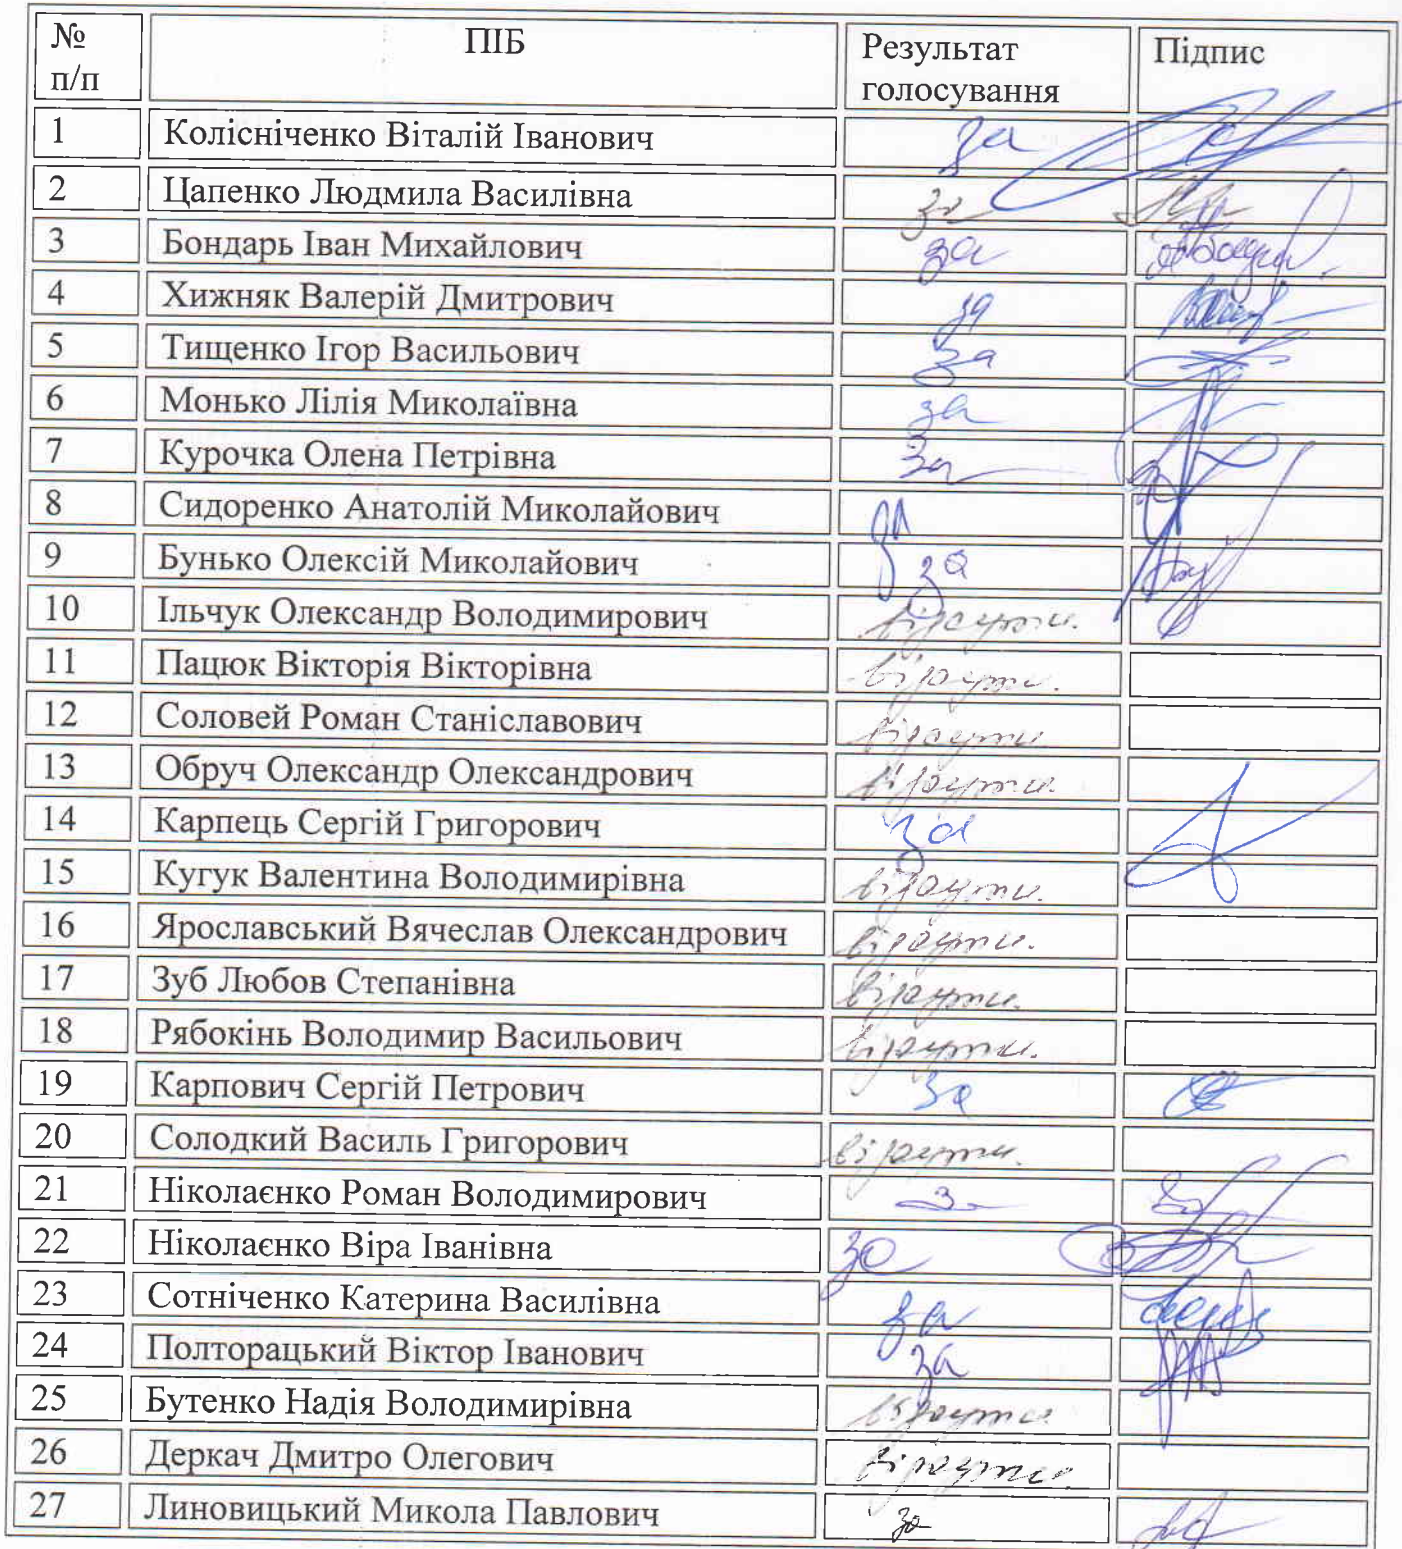 № п/п ПІБ Результат голосування Підпис
1 Колісніченко Віталій Іванович за
2 Цапенко Людмила Василівна за
3 Бондарь Іван Михайлович за
4 Хижняк Валерій Дмитрович за
5 Тищенко Ігор Васильович за
6 Монько Лілія Миколаївна за
7 Курочка Олена Петрівна за
8 Сидоренко Анатолій Миколайович за
9 Бунько Олексій Миколайович за
10 Ільчук Олександр Володимирович відсутн.
11 Пацюк Вікторія Вікторівна відсутн.
12 Соловей Роман Станіславович відсутн.
13 Обруч Олександр Олександрович відсутн.
14 Карпець Сергій Григорович за
15 Кугук Валентина Володимирівна відсутн.
16 Ярославський Вячеслав Олександрович відсутн.
17 Зуб Любов Степанівна відсутн.
18 Рябокінь Володимир Васильович відсутн.
19 Карпович Сергій Петрович за
20 Солодкий Василь Григорович відсутн.
21 Ніколаєнко Роман Володимирович за
22 Ніколаєнко Віра Іванівна за
23 Сотніченко Катерина Василівна за
24 Полторацький Віктор Іванович за
25 Бутенко Надія Володимирівна відсутн.
26 Деркач Дмитро Олегович відсутн.
27 Линовицький Микола Павлович за